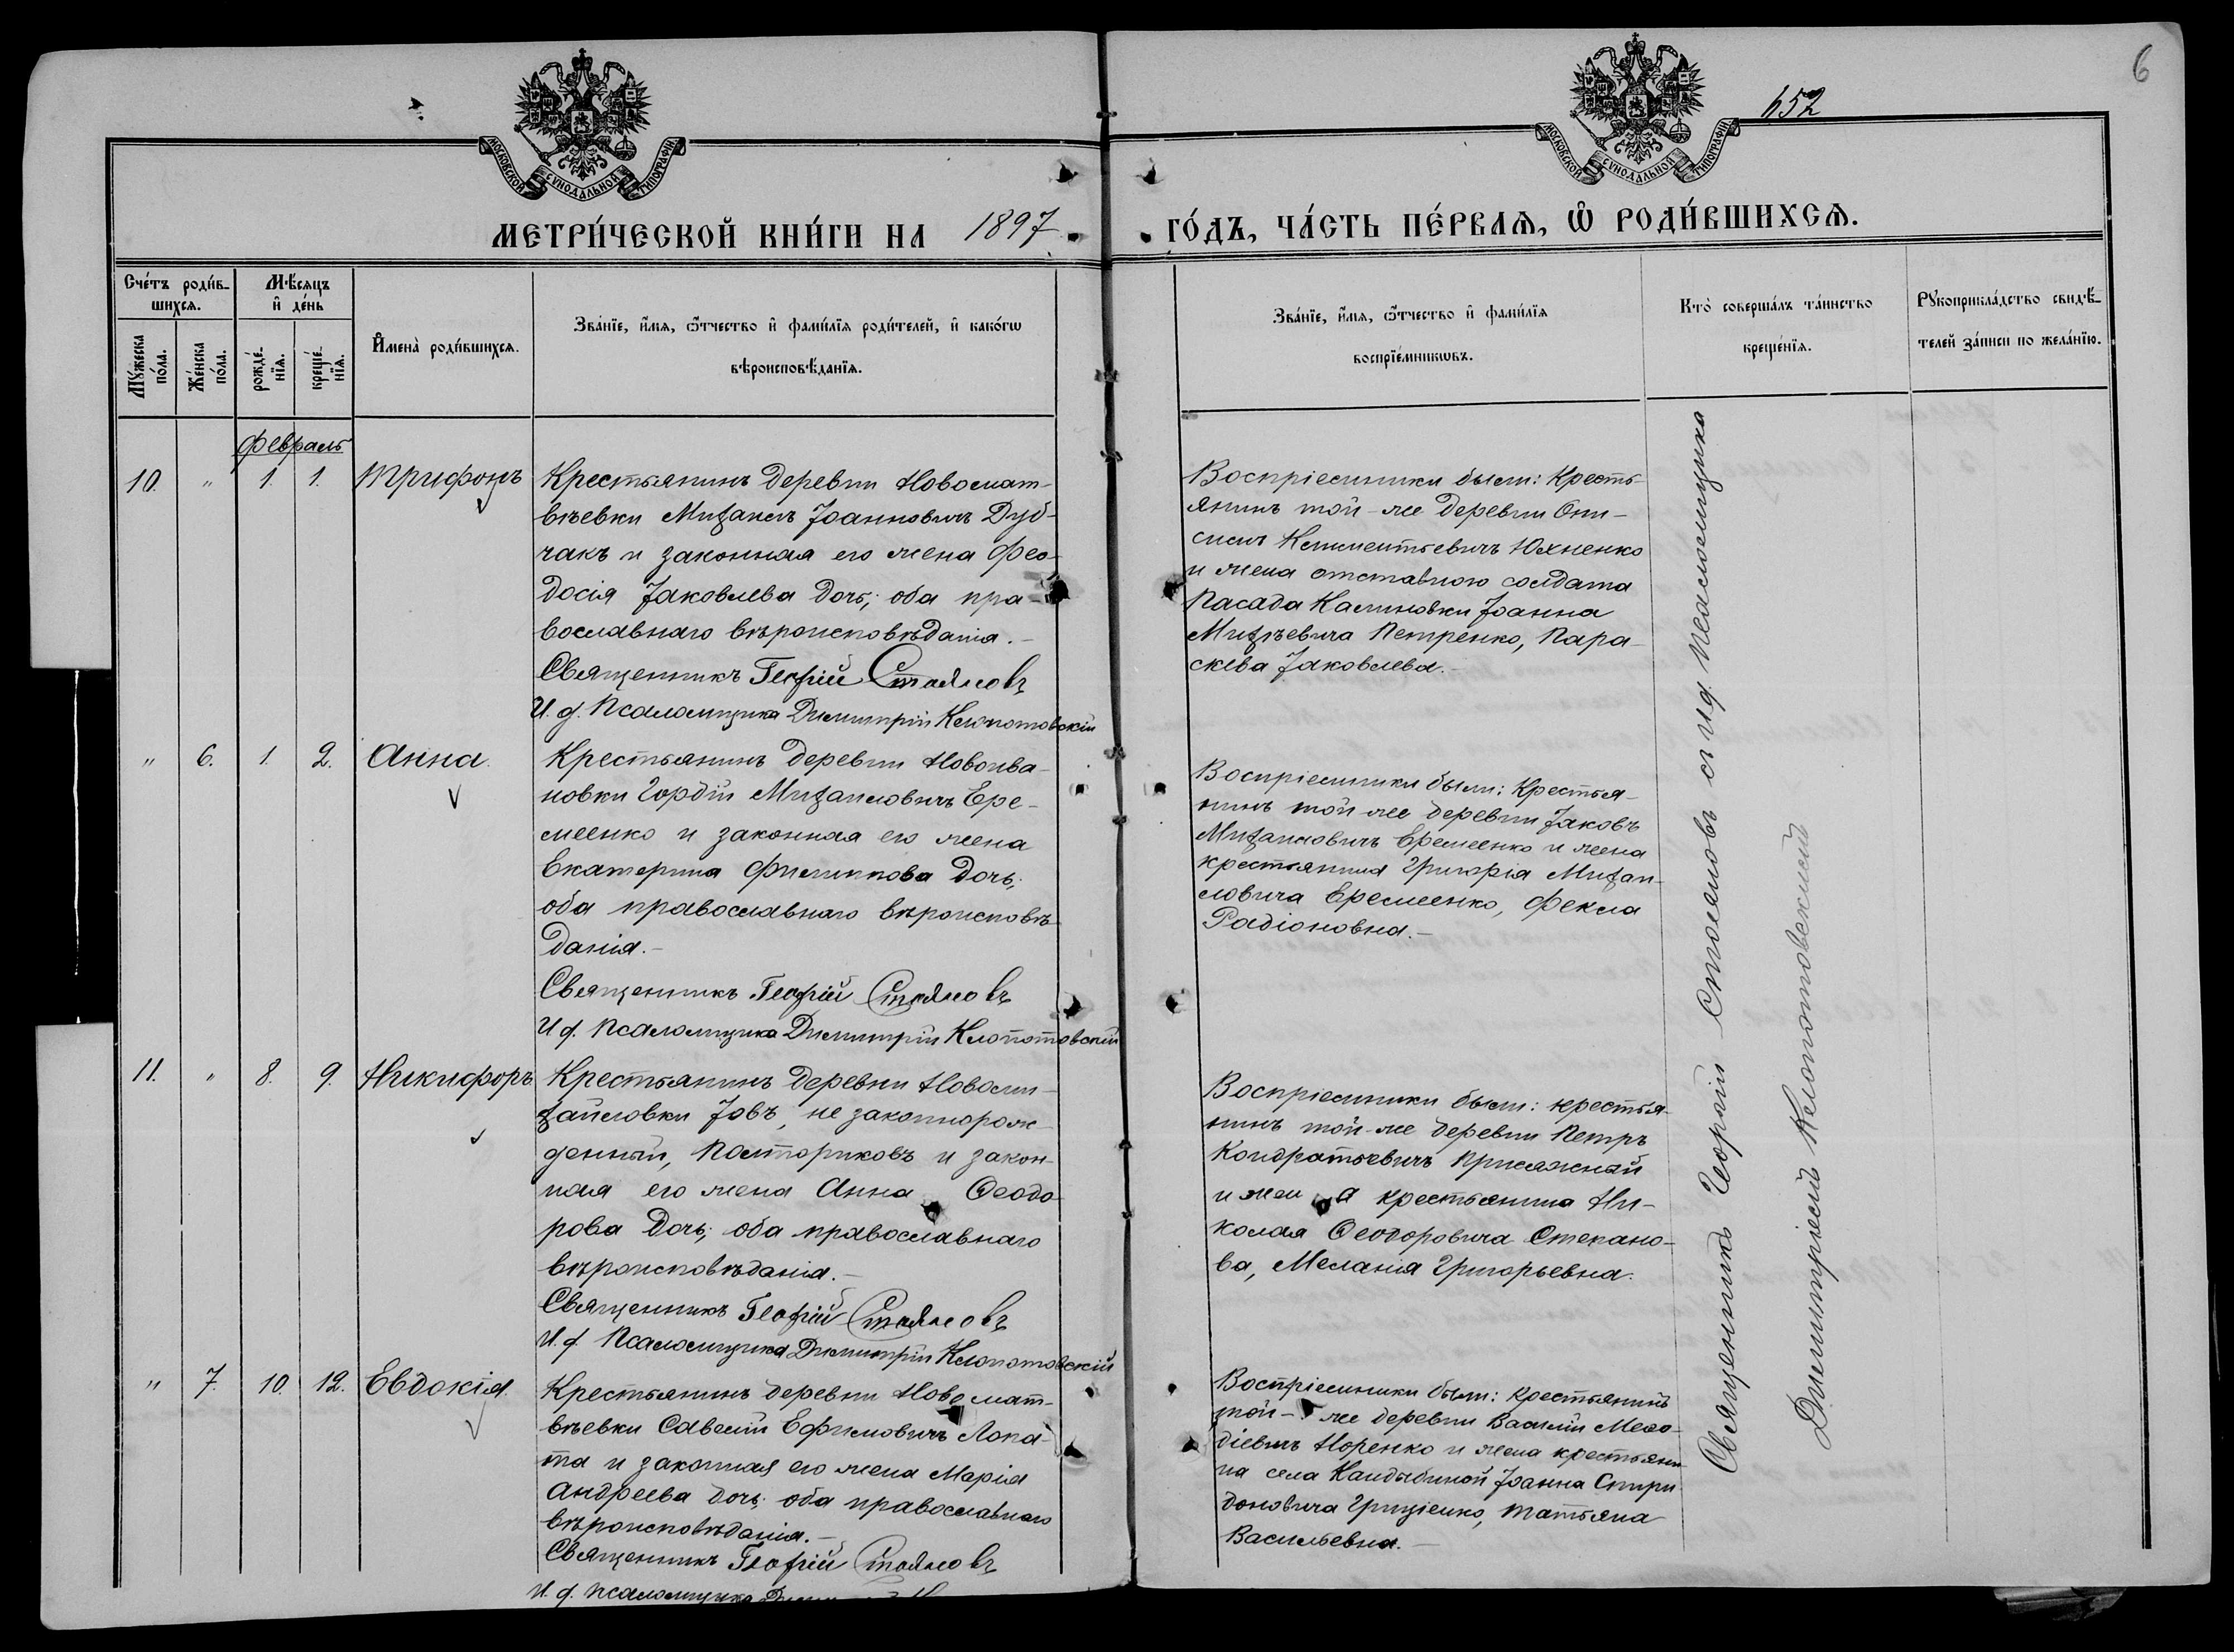 6
652
МОСКОВСКОЙ СѴНОДАЛЬНОЙ ТИПОГРАФІИ
МОСКОВСКОЙ СѴНОДАЛЬНОЙ ТИПОГРАФІИ
МЕТРИ́ЧЕСКОЙ КНИ́ГИ НА 1897 ГО́ДЪ, ЧА́СТЬ ПЕ́РВАѦ, Ѡ҆ РОДИ́ВШИХСѦ.
Сче́тъ роди́в-
шихсѧ.
Мѣ́сѧцъ
и҆ де́нь
Мꙋ́жеска
по́ла.
Же́нска
по́ла.
рожде́-
нїѧ.
креще́-
нїѧ.
И҆мена̀ роди́вшихсѧ.
Зва́нїе, и҆́мѧ, ѻ҆́тчество и҆ фами́лїѧ роди́телей, и҆ како́гѡ
вѣроисповѣ́данїѧ.
Зва́нїе, и҆́мѧ, ѻ҆́тчество и҆ фами́лїѧ
воспрїе́мникѡвъ.
Кто̀ соверша́лъ та́инство
креще́нїѧ.
Рꙋкоприкла́дство свидѣ́-
телей за́писи по жела́нїю.
Февраль
10. " 1. 1. Трифонъ
Крестьянинъ деревни Новомат-
вѣевки Михаилъ Іоанновичъ Дуб-
чакъ и законная его жена Фео-
досія Іаковлева дочь; оба пра-
вославнаго вѣроисповѣданія.-
Священникъ Георгій Стояновъ
И. д. Псаломщика Димитрій Клопотовскій
Воспріемники были: Кресть-
янинъ той-же деревни Они-
симъ Климентьевичъ Юхненко
и жена отставного солдата
Пасада Калиновки Іоанна
Михѣевича Петренко, Пара-
скева Іаковлева.-
" 6. 1. 2. Анна.
Крестьянинъ деревни Новоива-
новки Гордій Михаиловичъ Ере-
меенко и законная его жена
Екатерина Филиппова дочь;
оба православнаго вѣроисповѣ-
данія.-
Священникъ Георгій Стояновъ
И д. Псаломщика Димитрій Клопотовскій
Воспріемники были: Крестья-
нинъ той же деревни Іаковъ
Михаиловичъ Еремеенко и жена
крестьянина Григорія Михаи-
ловича Еремеенко, Фекла
Радіоновна.-
11. " 8. 9. Никифоръ
Крестьянинъ деревни Новоми-
хайловки Іовъ, не законнорож-
денный, Полториковъ и закон-
ная его жена Анна Ѳеодо-
рова дочь; оба православнаго
вѣроисповѣданія.-
Священникъ Георгій Стояновъ
И. д. Псаломщика Димитрій Клопотовскій
Воспріемники были: крестья-
нинъ той-же деревни Петръ
Кондратьевичъ Присяжный
и жена крестьянина Ни-
колая Ѳеодоровича Степано-
ва, Меланія Григорьевна.
" 7. 10. 12. Евдокія.
Крестьянинъ деревни Новомат-
вѣевки Савелій Ефимовичъ Лопа-
та и законная его жена Марія
Андреева дочь; оба православнаго
вѣроисповѣданія.-
Священникъ Георгій Стояновъ
И. д. Псаломщика
Воспріемники были: крестьянинъ
той- же деревни Василій Меѳо-
діевичъ Норенко и жена крестьяни-
на села Кандыбиной Іоанна Спири-
доновича Гриценко, Татьяна
Васильевна.-
Священникъ Георгій Стояновъ съ и.д. псаломщика
Димитріемъ Клопотовскимъ